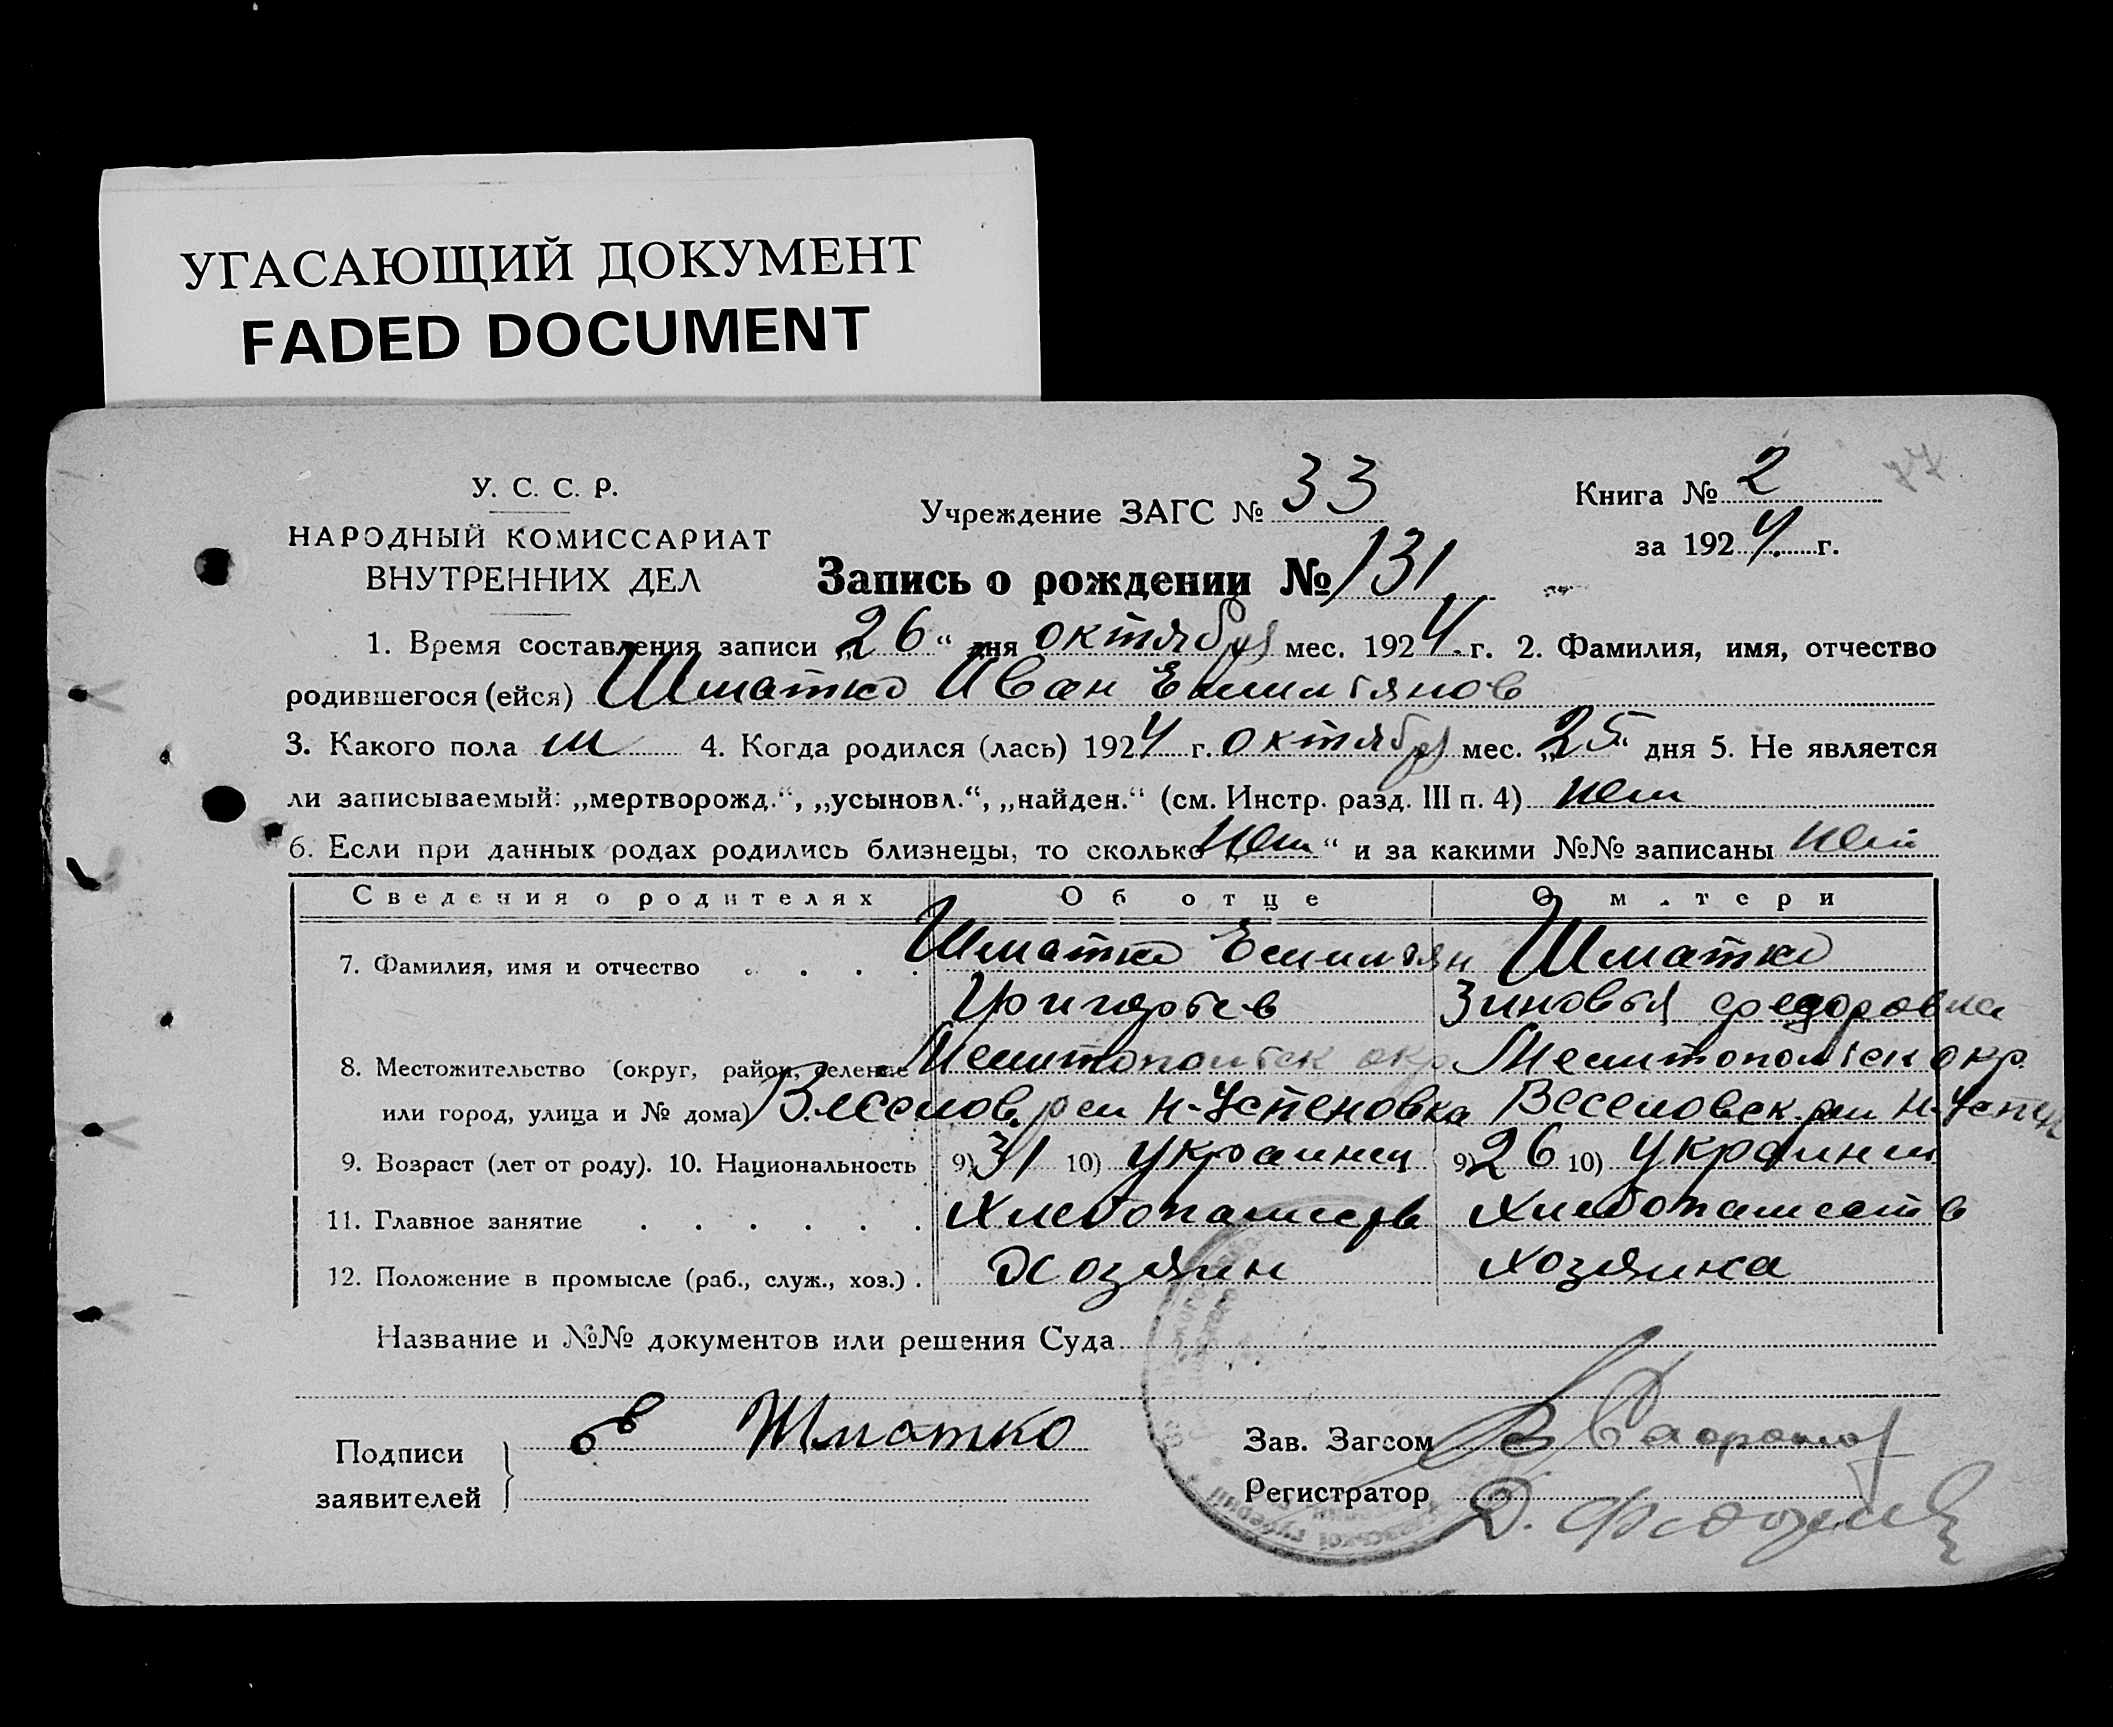 УГАСАЮЩИЙ ДОКУМЕНТ
FADED DOCUMENT
У. С. С. Р.
НАРОДНЫЙ КОМИССАРИАТ
ВНУТРЕННИХ ДЕЛ
Учреждение ЗАГС № 33
Книга № 2
за 1924 г.
Запись о рождении № 131
1. Время составления записи „26“ дня октября мес. 1924 г. 2. Фамилия, имя, отчество
родившегося (ейся) Шматко Иван Емильянов
3. Какого пола м 4. Когда родился (лась) 1924 г. октября мес. „25“ дня 5. Не является
ли записываемый: „мертворожд.“, „усыновл.“, „найден.“ (см. Инстр. разд. III п. 4) нет
6. Если при данных родах родились близнецы, то сколько „нет“ и за какими №№ записаны нет
Сведения о родителях Об отце О матери
7. Фамилия, имя и отчество . . . . Шматко Емильян Шматко
Григорьев Зиновья Федоровна
8. Местожительство (округ, район, селение Мелитопольск окр. Мелитопольск окр.
или город, улица и № дома) Веселов. рай Н-Успеновка Веселовск. рай Н-Успен
9. Возраст (лет от роду). 10. Национальность 9) 31 10) украинец 9) 26 10) украинка
11. Главное занятие . . . . . . Хлебопашеств Хлебопашеств
12. Положение в промысле (раб., служ., хоз.) . Хозяин хозяйка
Название и №№ документов или решения Суда
Подписи
заявителей
Е Шматко
Зав. Загсом
Регистратор Д.